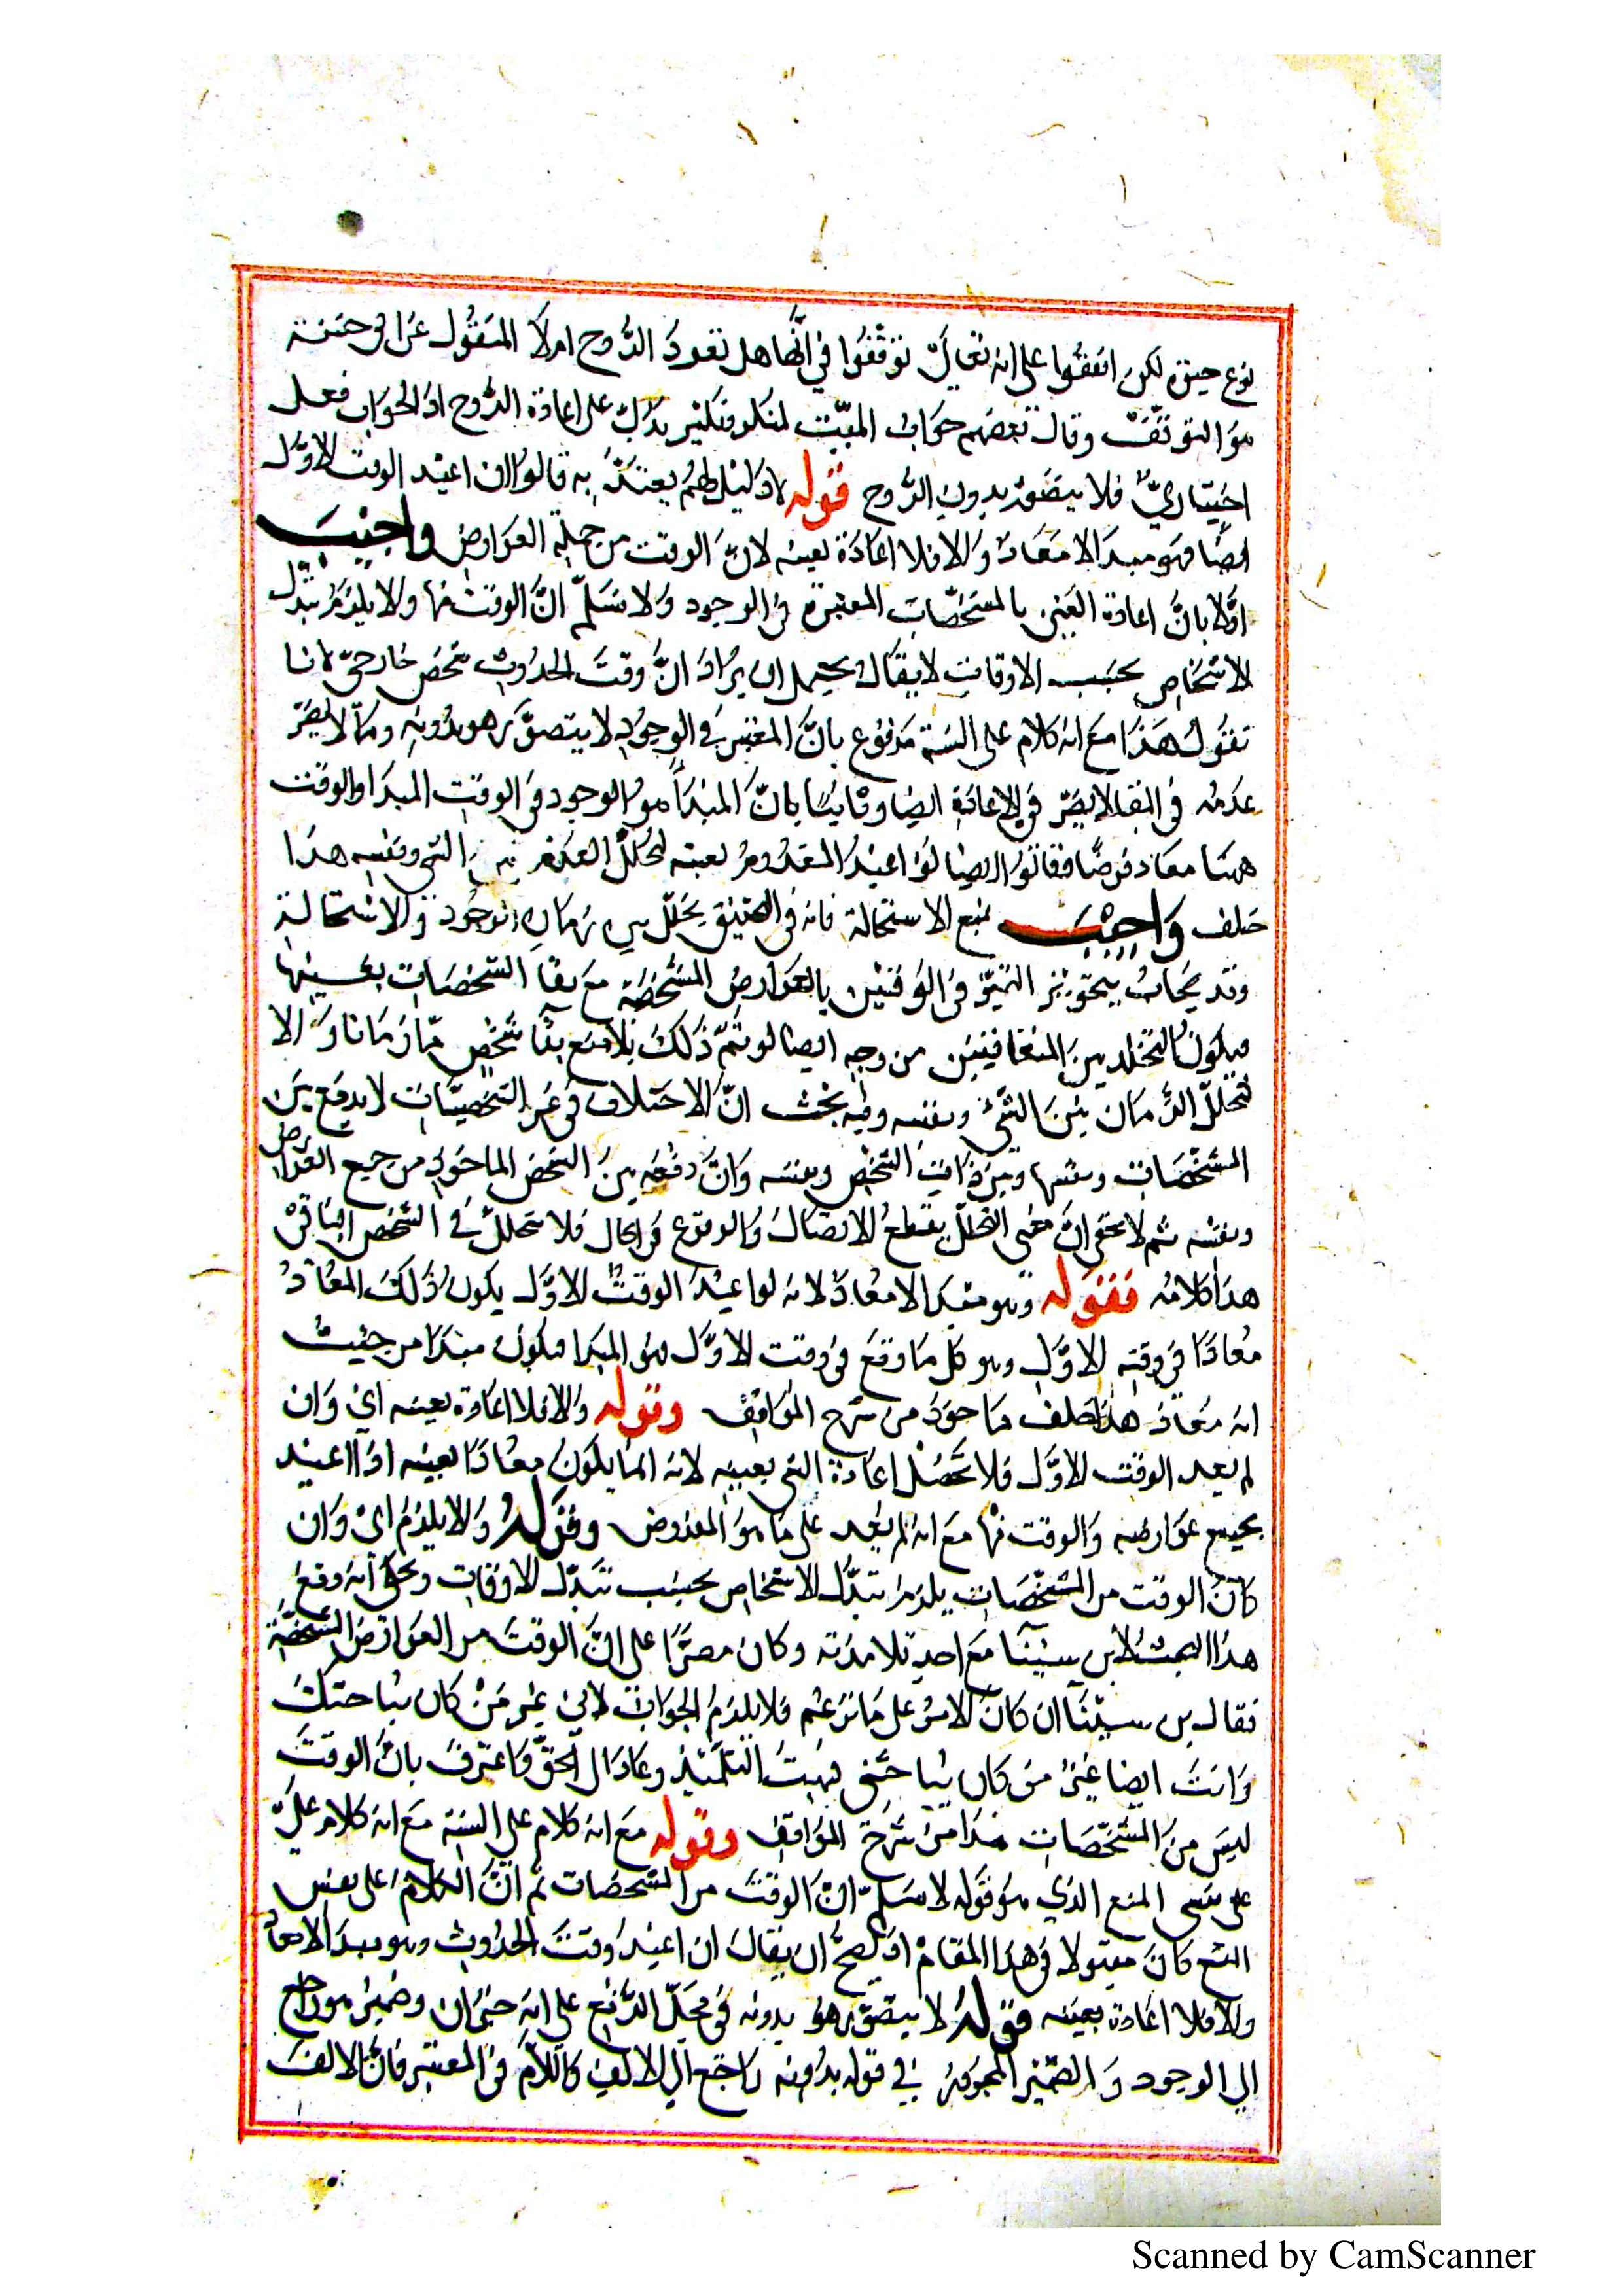 نوع حيوة لكن اتفقوا على انه تعالى توقفوا في انها هل تعود الروح ام لا المنقول عن ابي حنيفة
هو التوقف وقال بعضهم جواب الميت لمنكر ونكير يدل على اعادة الروح اذ الجواب فعل
اختياري فلا يتصور بدون الروح قوله لا دليل لهم يعتد به قالوا ان اعيد الوقت الاول
ايضا فهو مبدأ لا معاد والا فلا اعادة بعينه لان الوقت من جملة العوارض واجيب
اولا بان اعادة العين بالمشخصات المعتبرة في الوجود ولا نسلم ان الوقت منها والا يلزم تبدل
الاشخاص بحسب الاوقات لا يقال يحتمل ان يراد ان وقت الحدوث شخص خارجي لانا
نقول هذا مع انه كلام على السند مدفوع بان المعتبر في الوجود لا يتصور هو بدونه وما لا يضر
عدمه في البقا لا يضر في الاعادة ايضا وثانيا بان المبدأ هو الوجود في الوقت المبدا والوقت
ههنا معاد فرضا وقالوا ايضا لو اعيد المعدوم بعينه لتخلل العدم بين الشي ونفسه هذا
خلف واجيب بمنع الاستحالة فانه في التحقيق تخلل بين زماني الوجود ولا استحالة
وقد يجاب بتجويز التميز في الوقتين بالعوارض المشخصة مع بقا الشخصات بعينها
فيكون التخلل بين المتغايرين من وجه ايضا لو تم ذلك لامتنع بقا شخص ما زمانا والا
لتخلل الزمان بين الشيء ونفسه وفيه بحث ان الاختلاف في غير الشخصيات لا يدفع بين
المشخصات ونفسها وبين ذات الشخص ونفسه وان دفعه بين الشخص الماخوذ من جميع العوارض
ونفسه ثم لا يخفى ان معنى التخلل بقطع الاتصال والوقوع في الحال فلا تخلل في الشخص الباقي
هذا كلامه فقوله وهو مبدا لا معاد لانه لو اعيد الوقت الاول يكون ذلك المعاد
معادا في وقته الاول وهو كل ما وقع في وقت الاول فهو المبدا فيكون مبتدا من حيث
انه معاد هذا خلف ماخوذ من شرح المواقف وقوله والا فلا اعادة بعينه اي وان
لم يعد الوقت الاول فلا تحصل اعادة الشي بعينه لانه انما يكون معادا بعينه اذا اعيد
بجميع عوارضه والوقت منها مع انه لم يعد على ما هو المفروض وقوله والا يلزم اي وان
كان الوقت من المشخصات يلزم تبدل الاشخاص بحسب تبدل الاوقات ويحكى انه وقع
هذا البحث لابن سينا مع احد تلامذته وكان مصرا على ان الوقت من العوارض المشخصة
فقال بن سينا ان كان الامر على ما تزعم فلا يلزم الجواب لاني غير من كان يباحثك
وانت ايضا غير من كان يباحثني فبهت التلميذ وعاد الى الحق واعترف بان الوقت
ليس من المشخصات هذا من شرح المواقف وقوله مع انه كلام على السند مع انه كلام على
على سند المنع الذي هو قوله لا نسلم ان الوقت من المشخصات ثم ان الكلام على نفس
المنع كان مقبولا في هذا المقام اذ يصح ان يقال ان اعيد وقت الحدوث وهو مبدأ لا معاد
والا فلا اعادة بعينه قوله لا يتصور هو بدونه في محل الرفع على انه خبر ان وضمير هو راجع
الى الوجود والضمير المجرور في قوله بدونه راجع الى الالف واللام في المعتبر فان الالف
Scanned by CamScanner